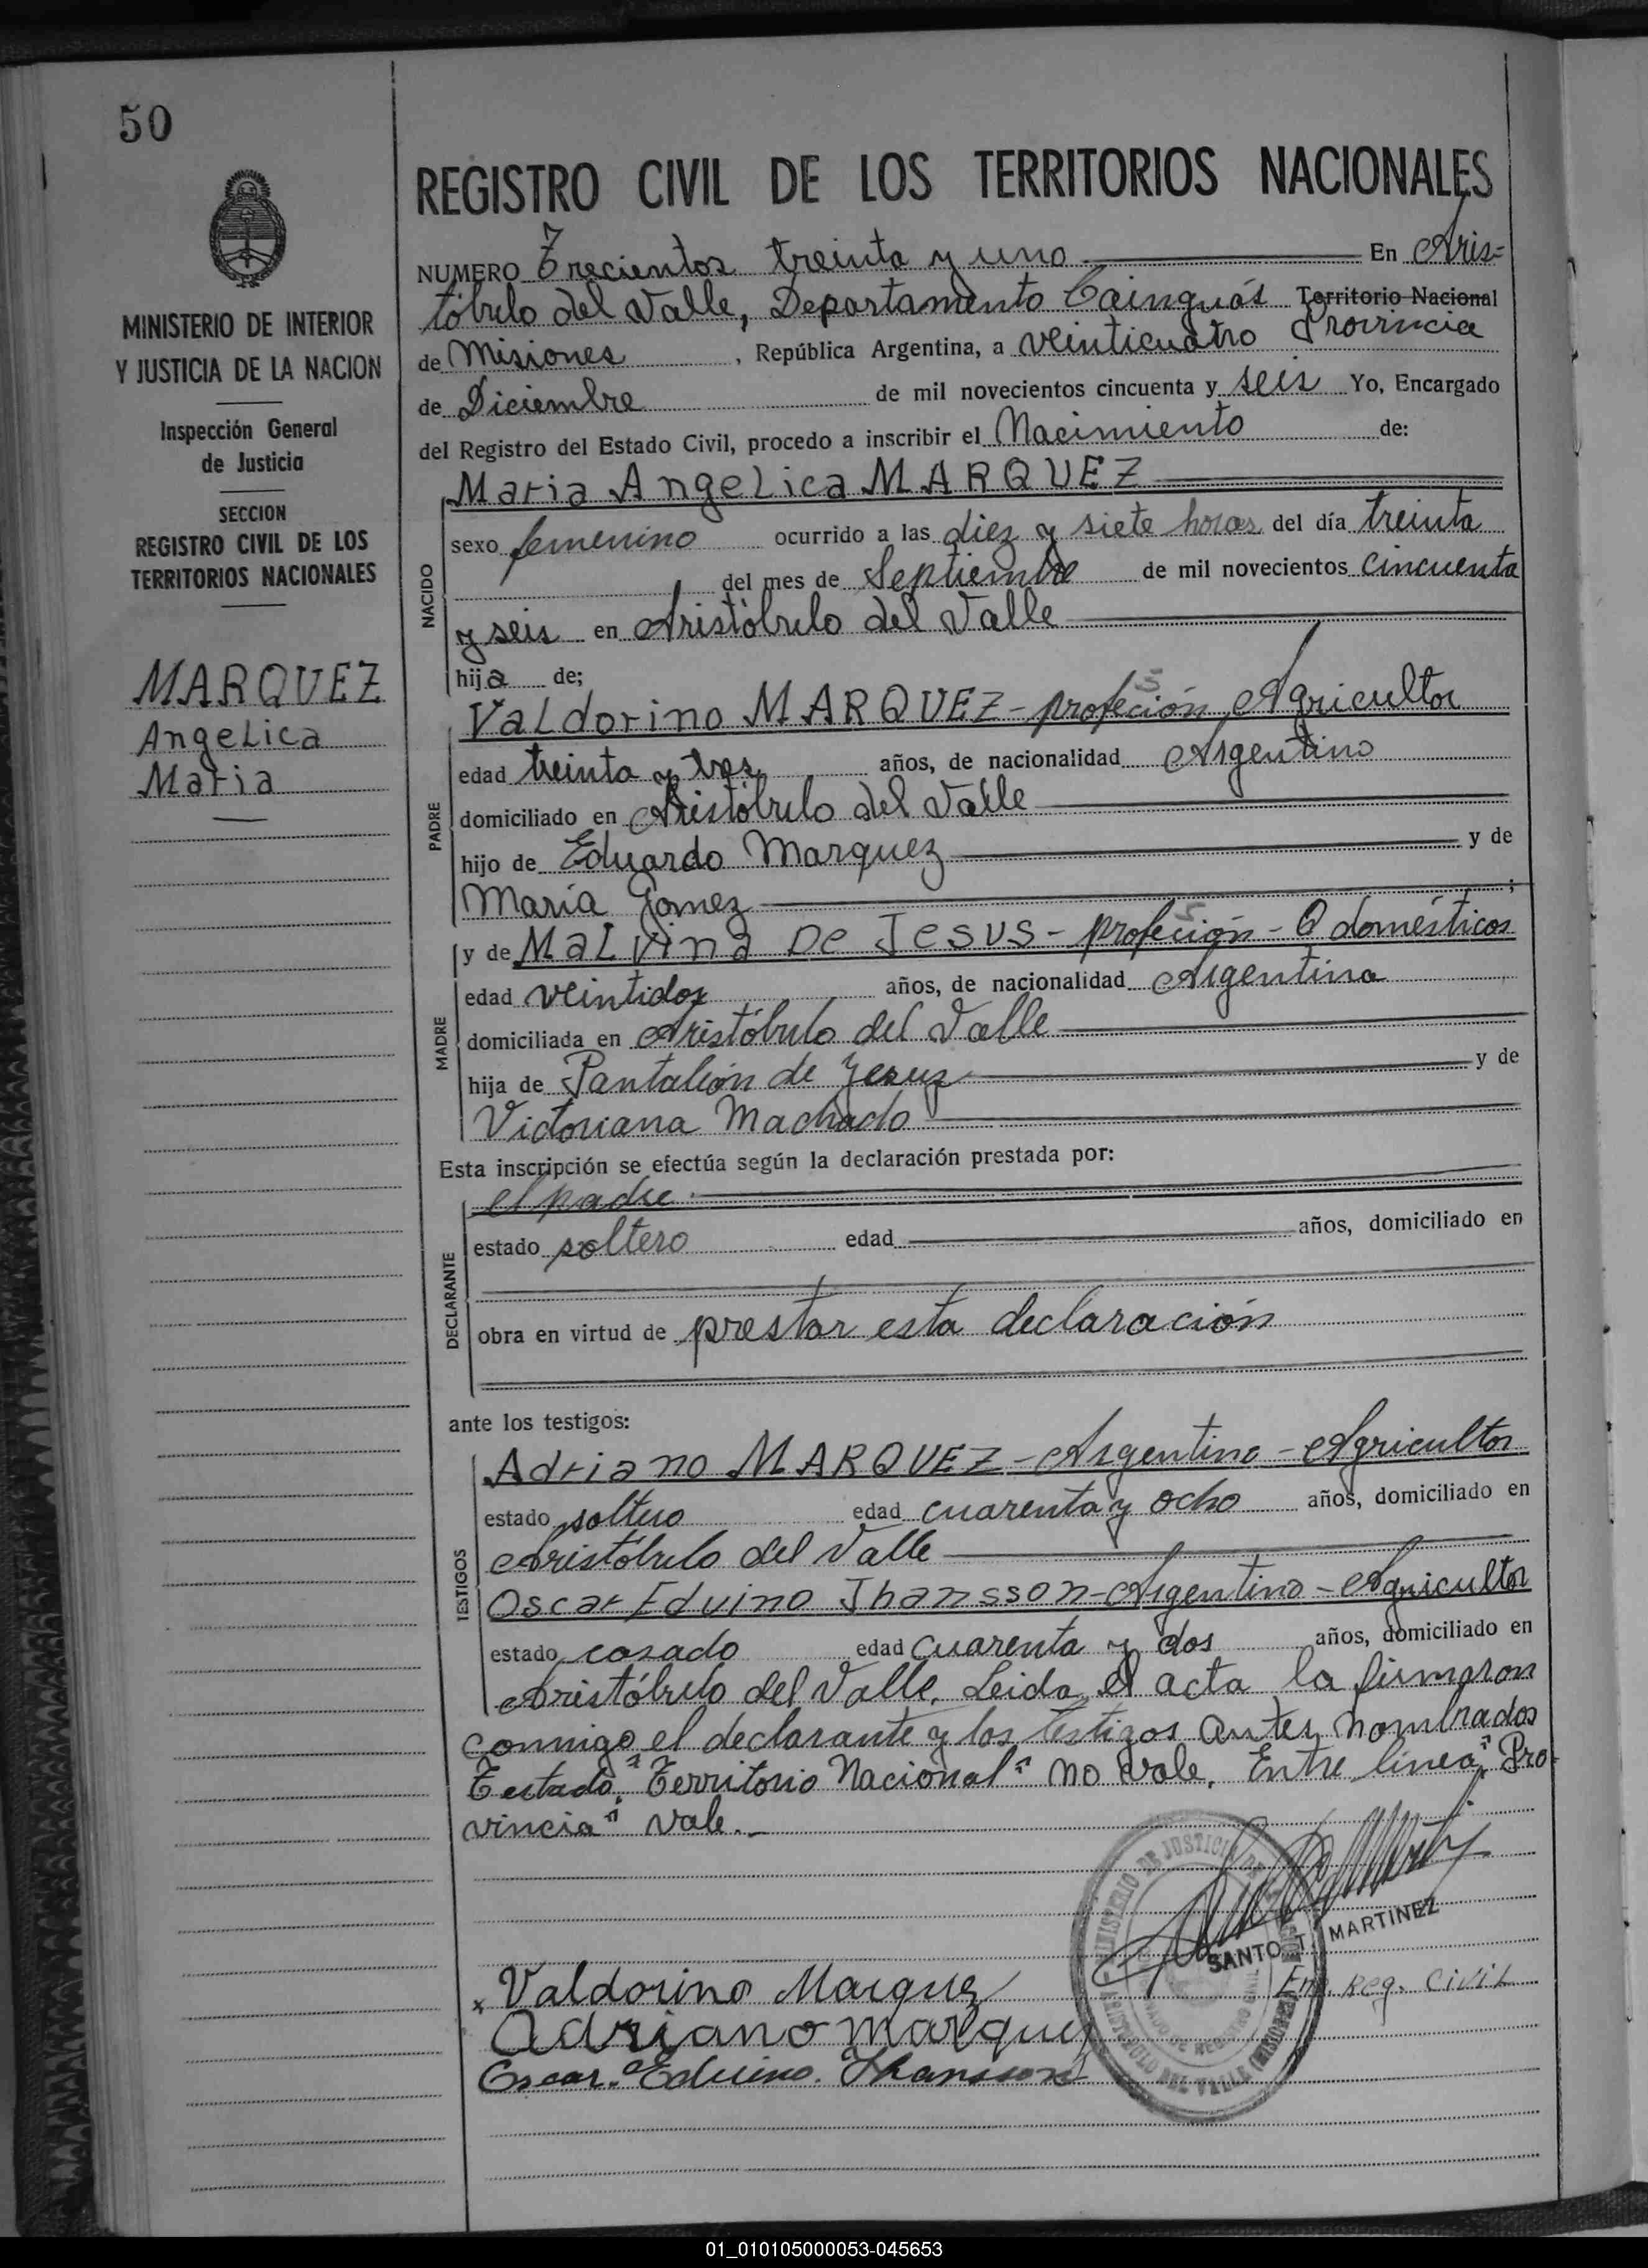 50
MINISTERIO DE INTERIOR
Y JUSTICIA DE LA NACION
Inspección General
de Justicia
SECCION
REGISTRO CIVIL DE LOS
TERRITORIOS NACIONALES
MARQUEZ
Angelica
Maria
REGISTRO CIVIL DE LOS TERRITORIOS NACIONALES
NUMERO Trecientos treinta y uno En Aris=
tóbulo del Valle, Departamento Cainguás Territorio Nacional
Provincia
de Misiones, República Argentina, a veinticuatro
de Diciembre de mil novecientos cincuenta y seis Yo, Encargado
del Registro del Estado Civil, procedo a inscribir el Nacimiento de:
NACIDO
Maria Angelica MARQUEZ
sexo femenino ocurrido a las diez y siete horas del día treinta
del mes de Septiembre de mil novecientos cincuenta
y seis en Aristóbulo del Valle
hija de;
PADRE
Valdorino MARQUEZ - profeción Agricultor
s
edad treinta y tres años, de nacionalidad Argentino
domiciliado en Aristóbulo del Valle
hijo de Eduardo Marquez y de
María Gomez ;
MADRE
y de Malvina De Jesus - profeción - Q domésticos
s
edad veintidos años, de nacionalidad Argentina
domiciliada en Aristóbulo del Valle
hija de Pantaleón de Jesuz y de
Victoriana Machado
Esta inscripción se efectúa según la declaración prestada por:
DECLARANTE
el padre
estado soltero edad años, domiciliado en
obra en virtud de prestar esta declaración
ante los testigos:
TESTIGOS
Adriano MARQUEZ - Argentino - Agricultor
estado soltero edad cuarenta y ocho años, domiciliado en
Aristóbulo del Valle
Oscar Eduino Jhansson - Argentino - Agricultor
estado casado edad cuarenta y dos años, domiciliado en
Aristóbulo del Valle. Leida el acta la firmaron
conmigo el declarante y los testigos antes nombrados
Testado: "Territorio Nacional" no vale. Entre linea "Pro-
vincia" vale.-
SANTO T. MARTINEZ
Enc. Reg. Civil
Valdorino Marquez
Adriano Marquez
Oscar. Eduino. Jhansson
01_010105000053-045653